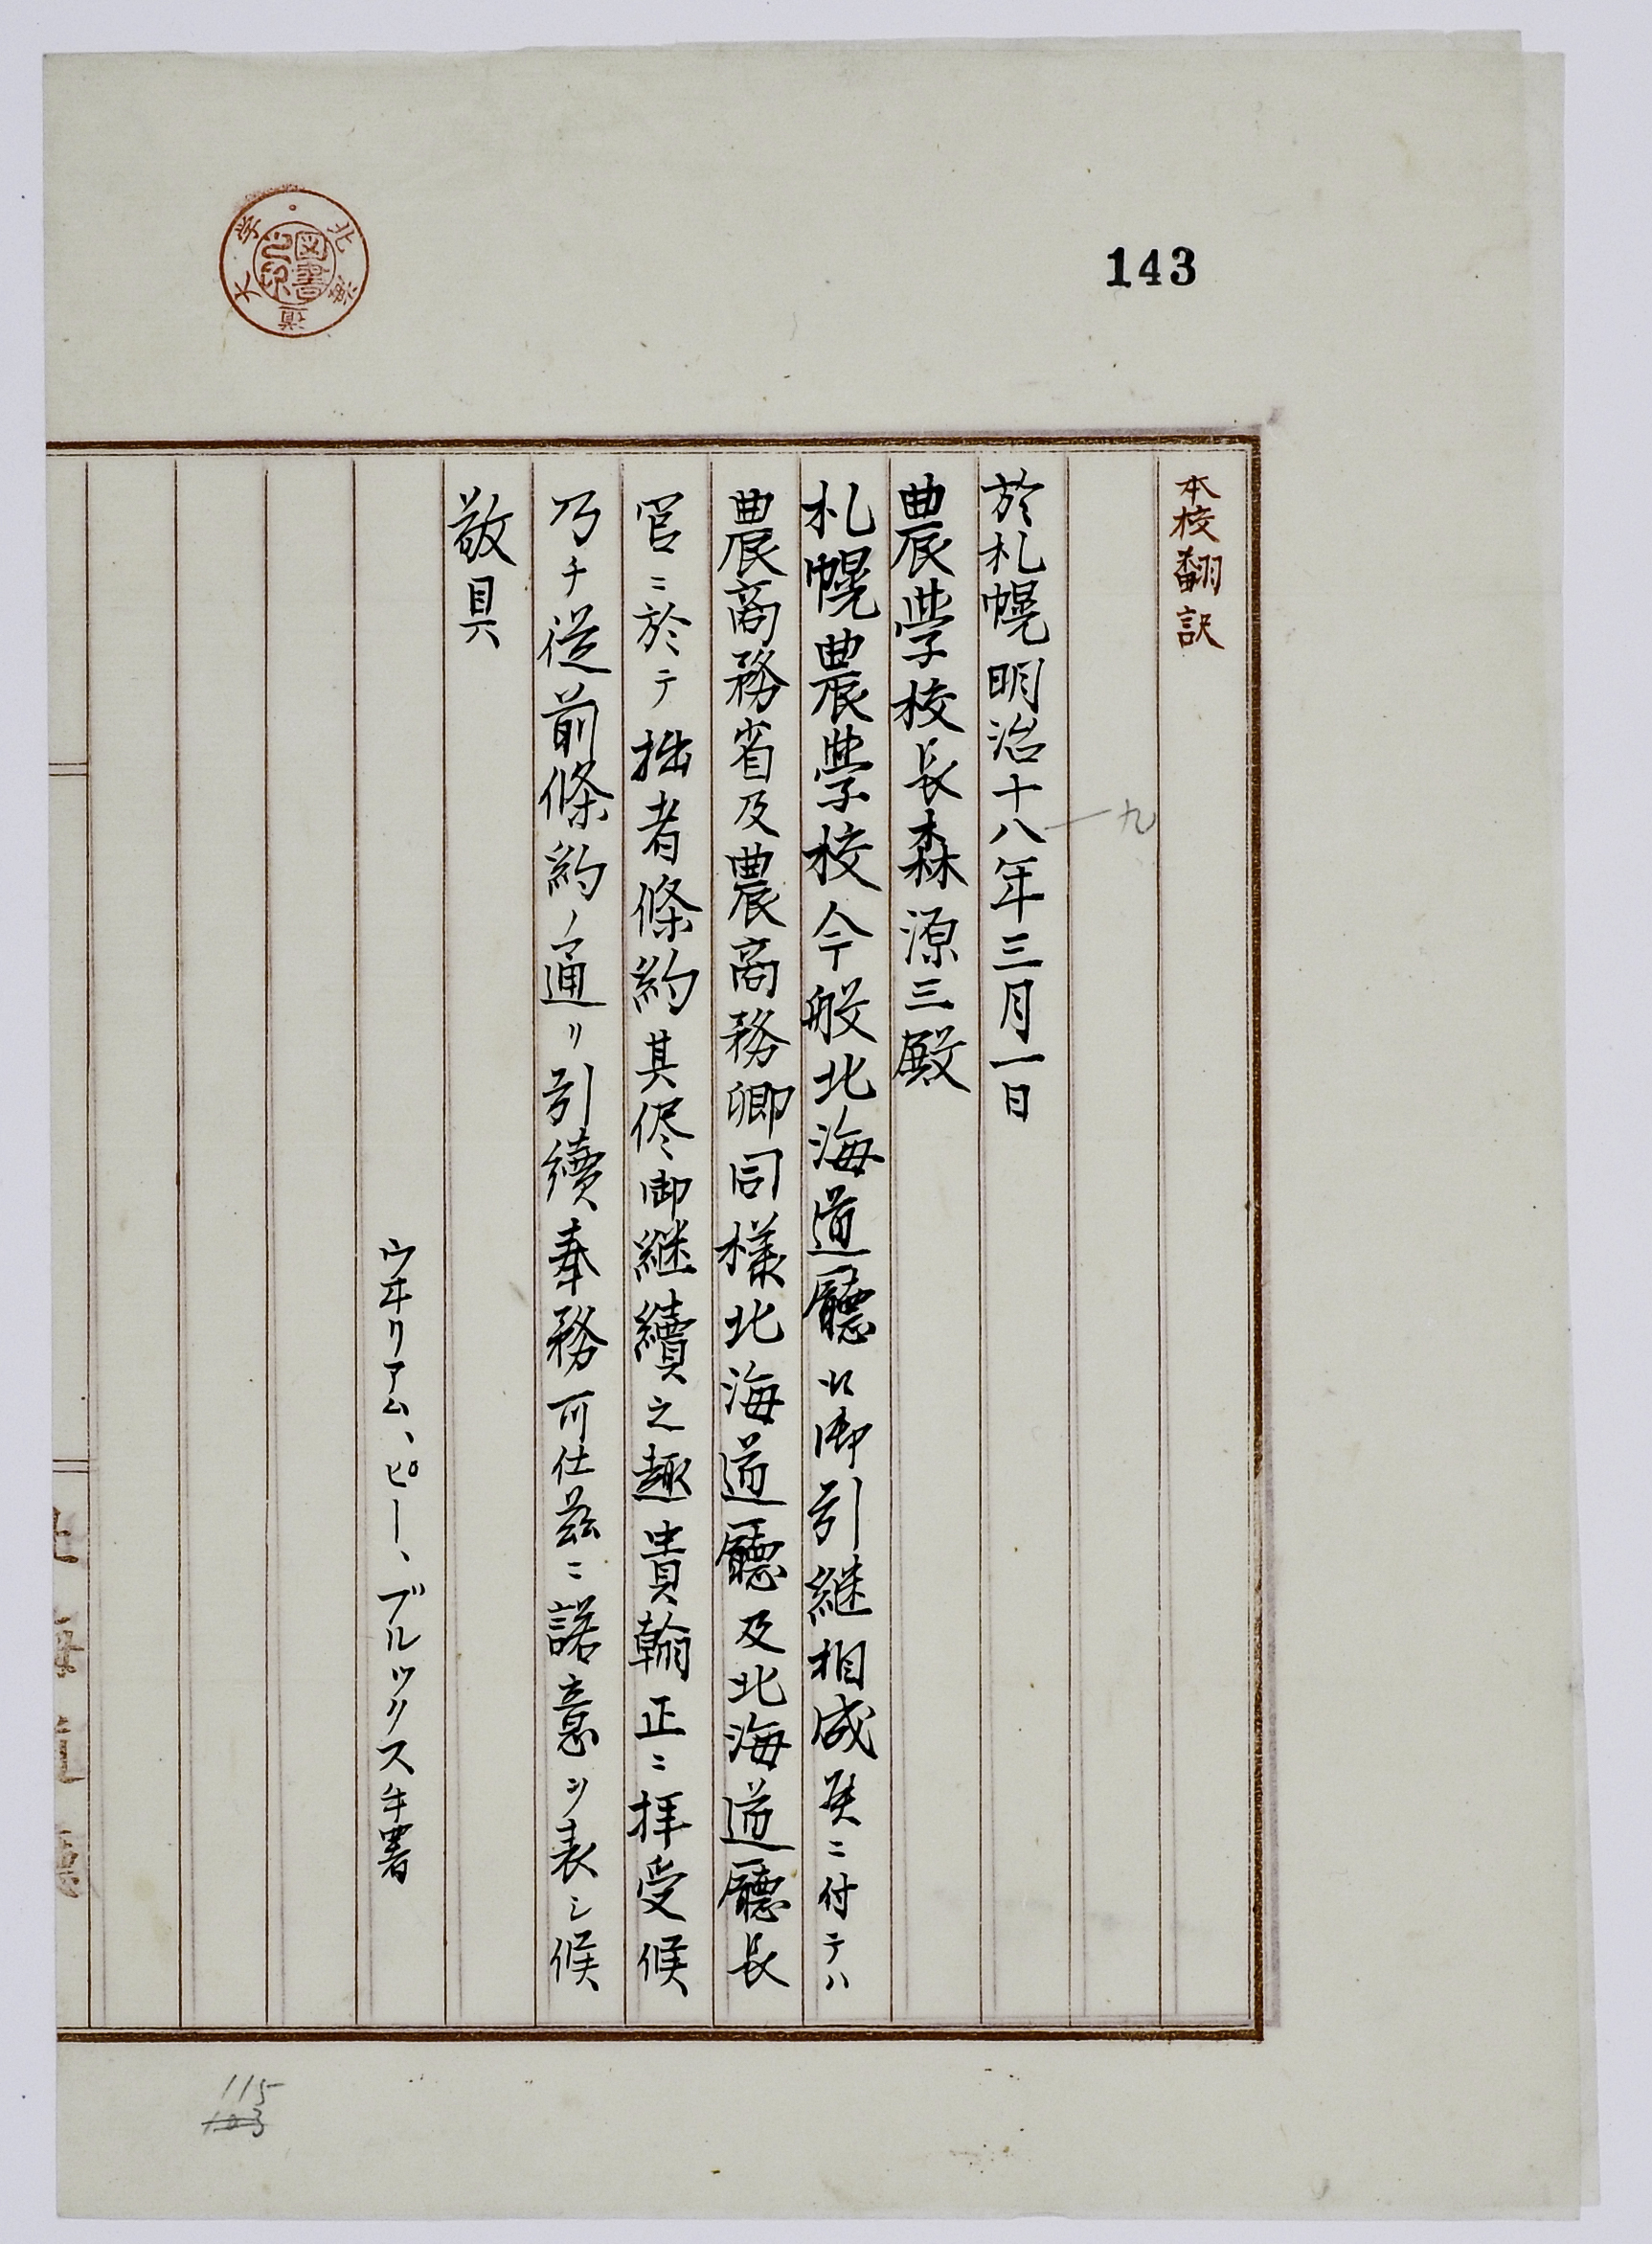 143
本校翻訳
於札幌明治十八年三月一日
九
農學校長森源三殿
札幌農學校今般北海道廳ヘ御引継相成候ニ付テハ
農商務省及農商務卿同様北海道廳及北海道廳長
官ニ於テ拙者條約其侭御継續之趣貴翰正ニ拝受候
乃チ従前條約ノ通リ引續奉務可仕茲ニ諾意ヲ表シ候
敬具
ウヰリアム、ピー、ブルックス 手署
北海道大学
図書之印
北海道廳
115
103